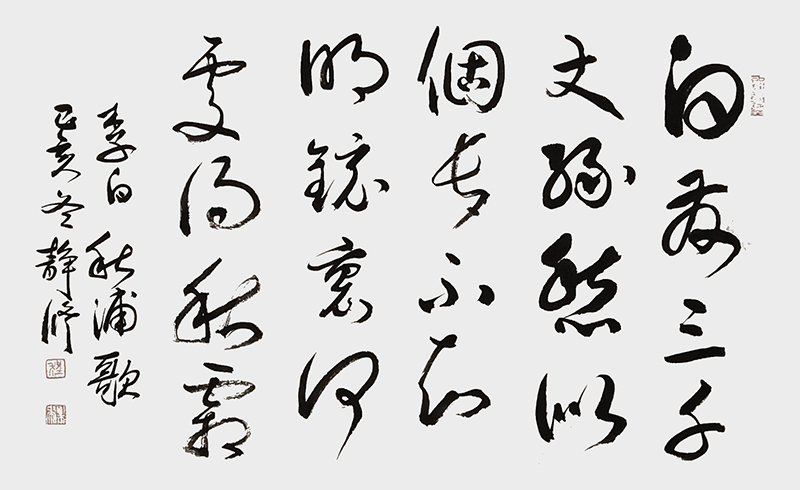 白发三千
丈缘愁似
個长不知
明镜裏何
處得秋霜
李白秋浦歌
己亥冬静修